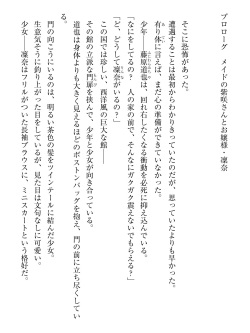 プロローグ　メイドの柴咲さんとお嬢様・凜奈
そこに恐怖があった。
遭遇することは最初からわかりきっていたのだが、思っていたよりも早かった。
有り体に言えば、まだ心の準備ができていなかった。
少年――藤原道也は、回れ右したくなる衝動を必死に抑え込んでいる。
「なにをしてるの？　人の家の前で、そんなにガクガク震えないでもらえる？」
「ど、どうして凜奈がいるの？」
この国では珍しい、西洋風の巨大な館――
その館の立派な門扉を挟んで、少年と少女が向き合っている。
道也は身体よりも大きく見えるほどのボストンバッグを抱え、門の前に立ち尽くしてい
る。
門の向こうにいるのは、明るい茶色の髪をツインテールに結んだ少女。
生意気そうに釣り上がった目をしているが、見た目は文句なしに可愛い。
少女――凜奈はフリルがついた長袖ブラウスに、ミニスカートという格好だ。